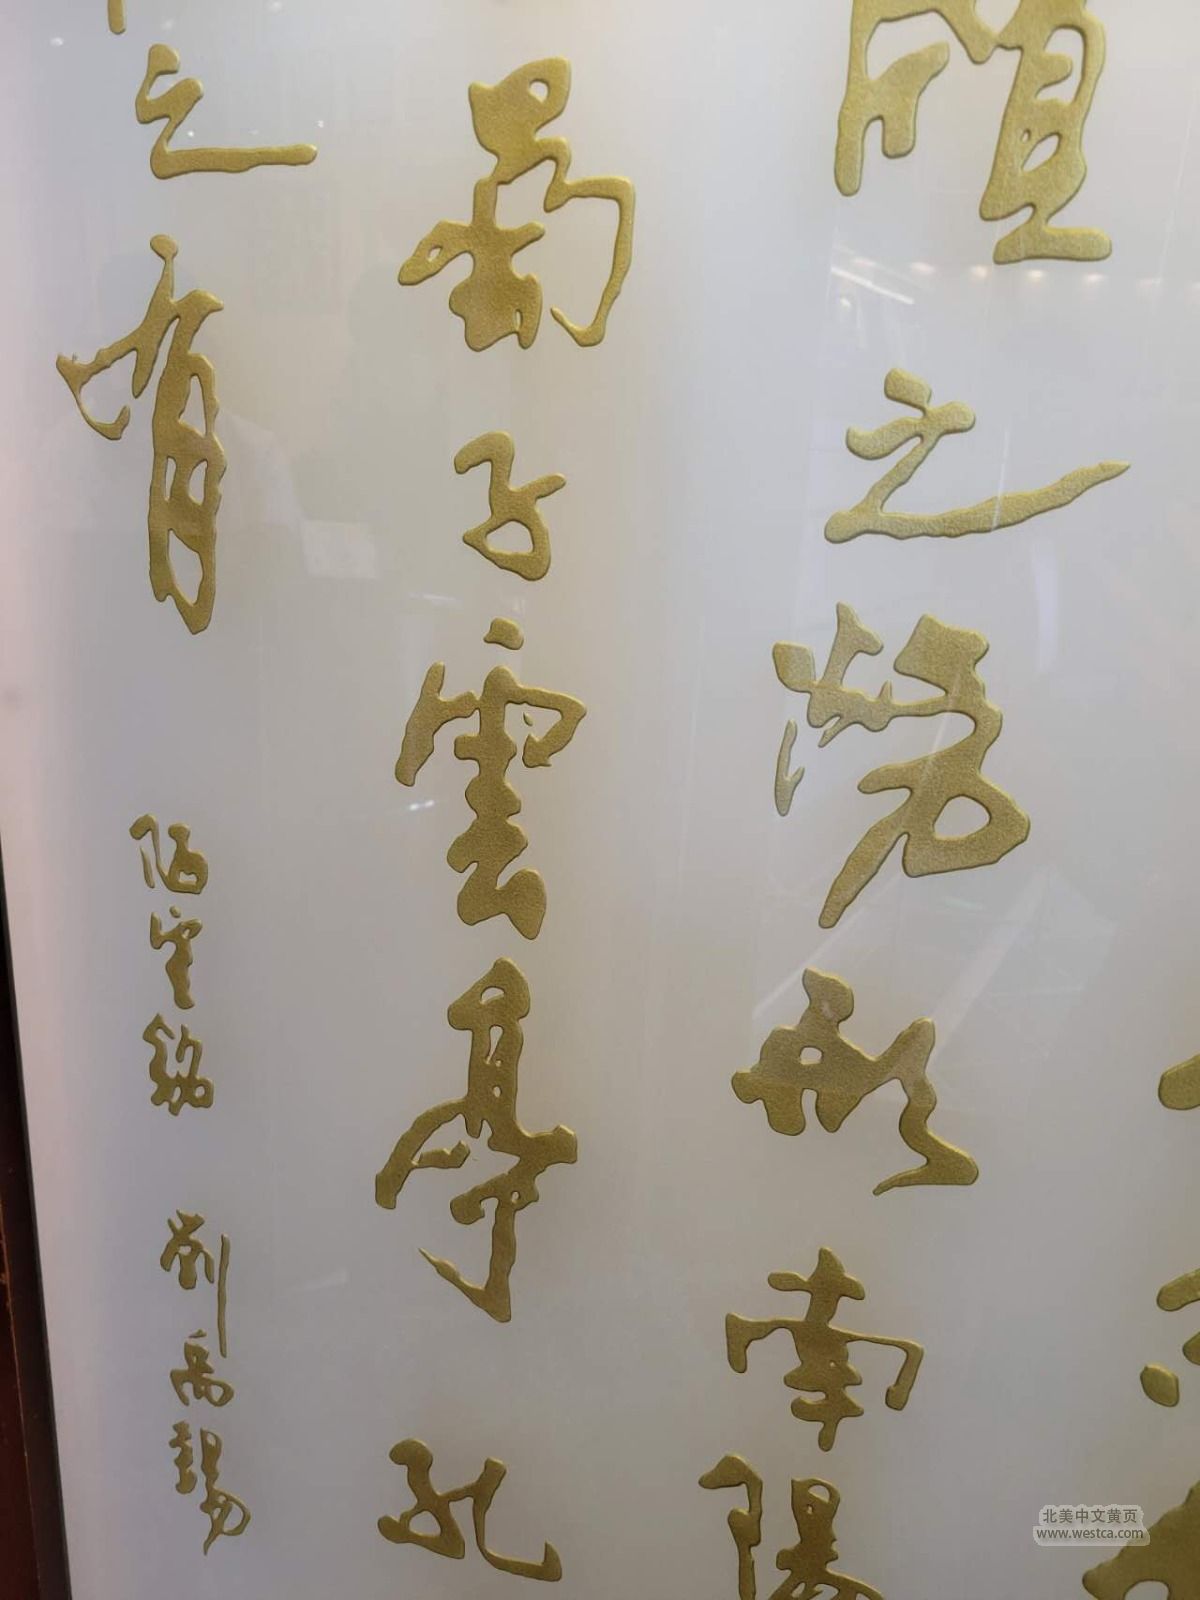 牘之勞形南陽
蜀子雲亭孔
之有 陋室銘 劉禹錫
北美中文黄页
www.westca.com